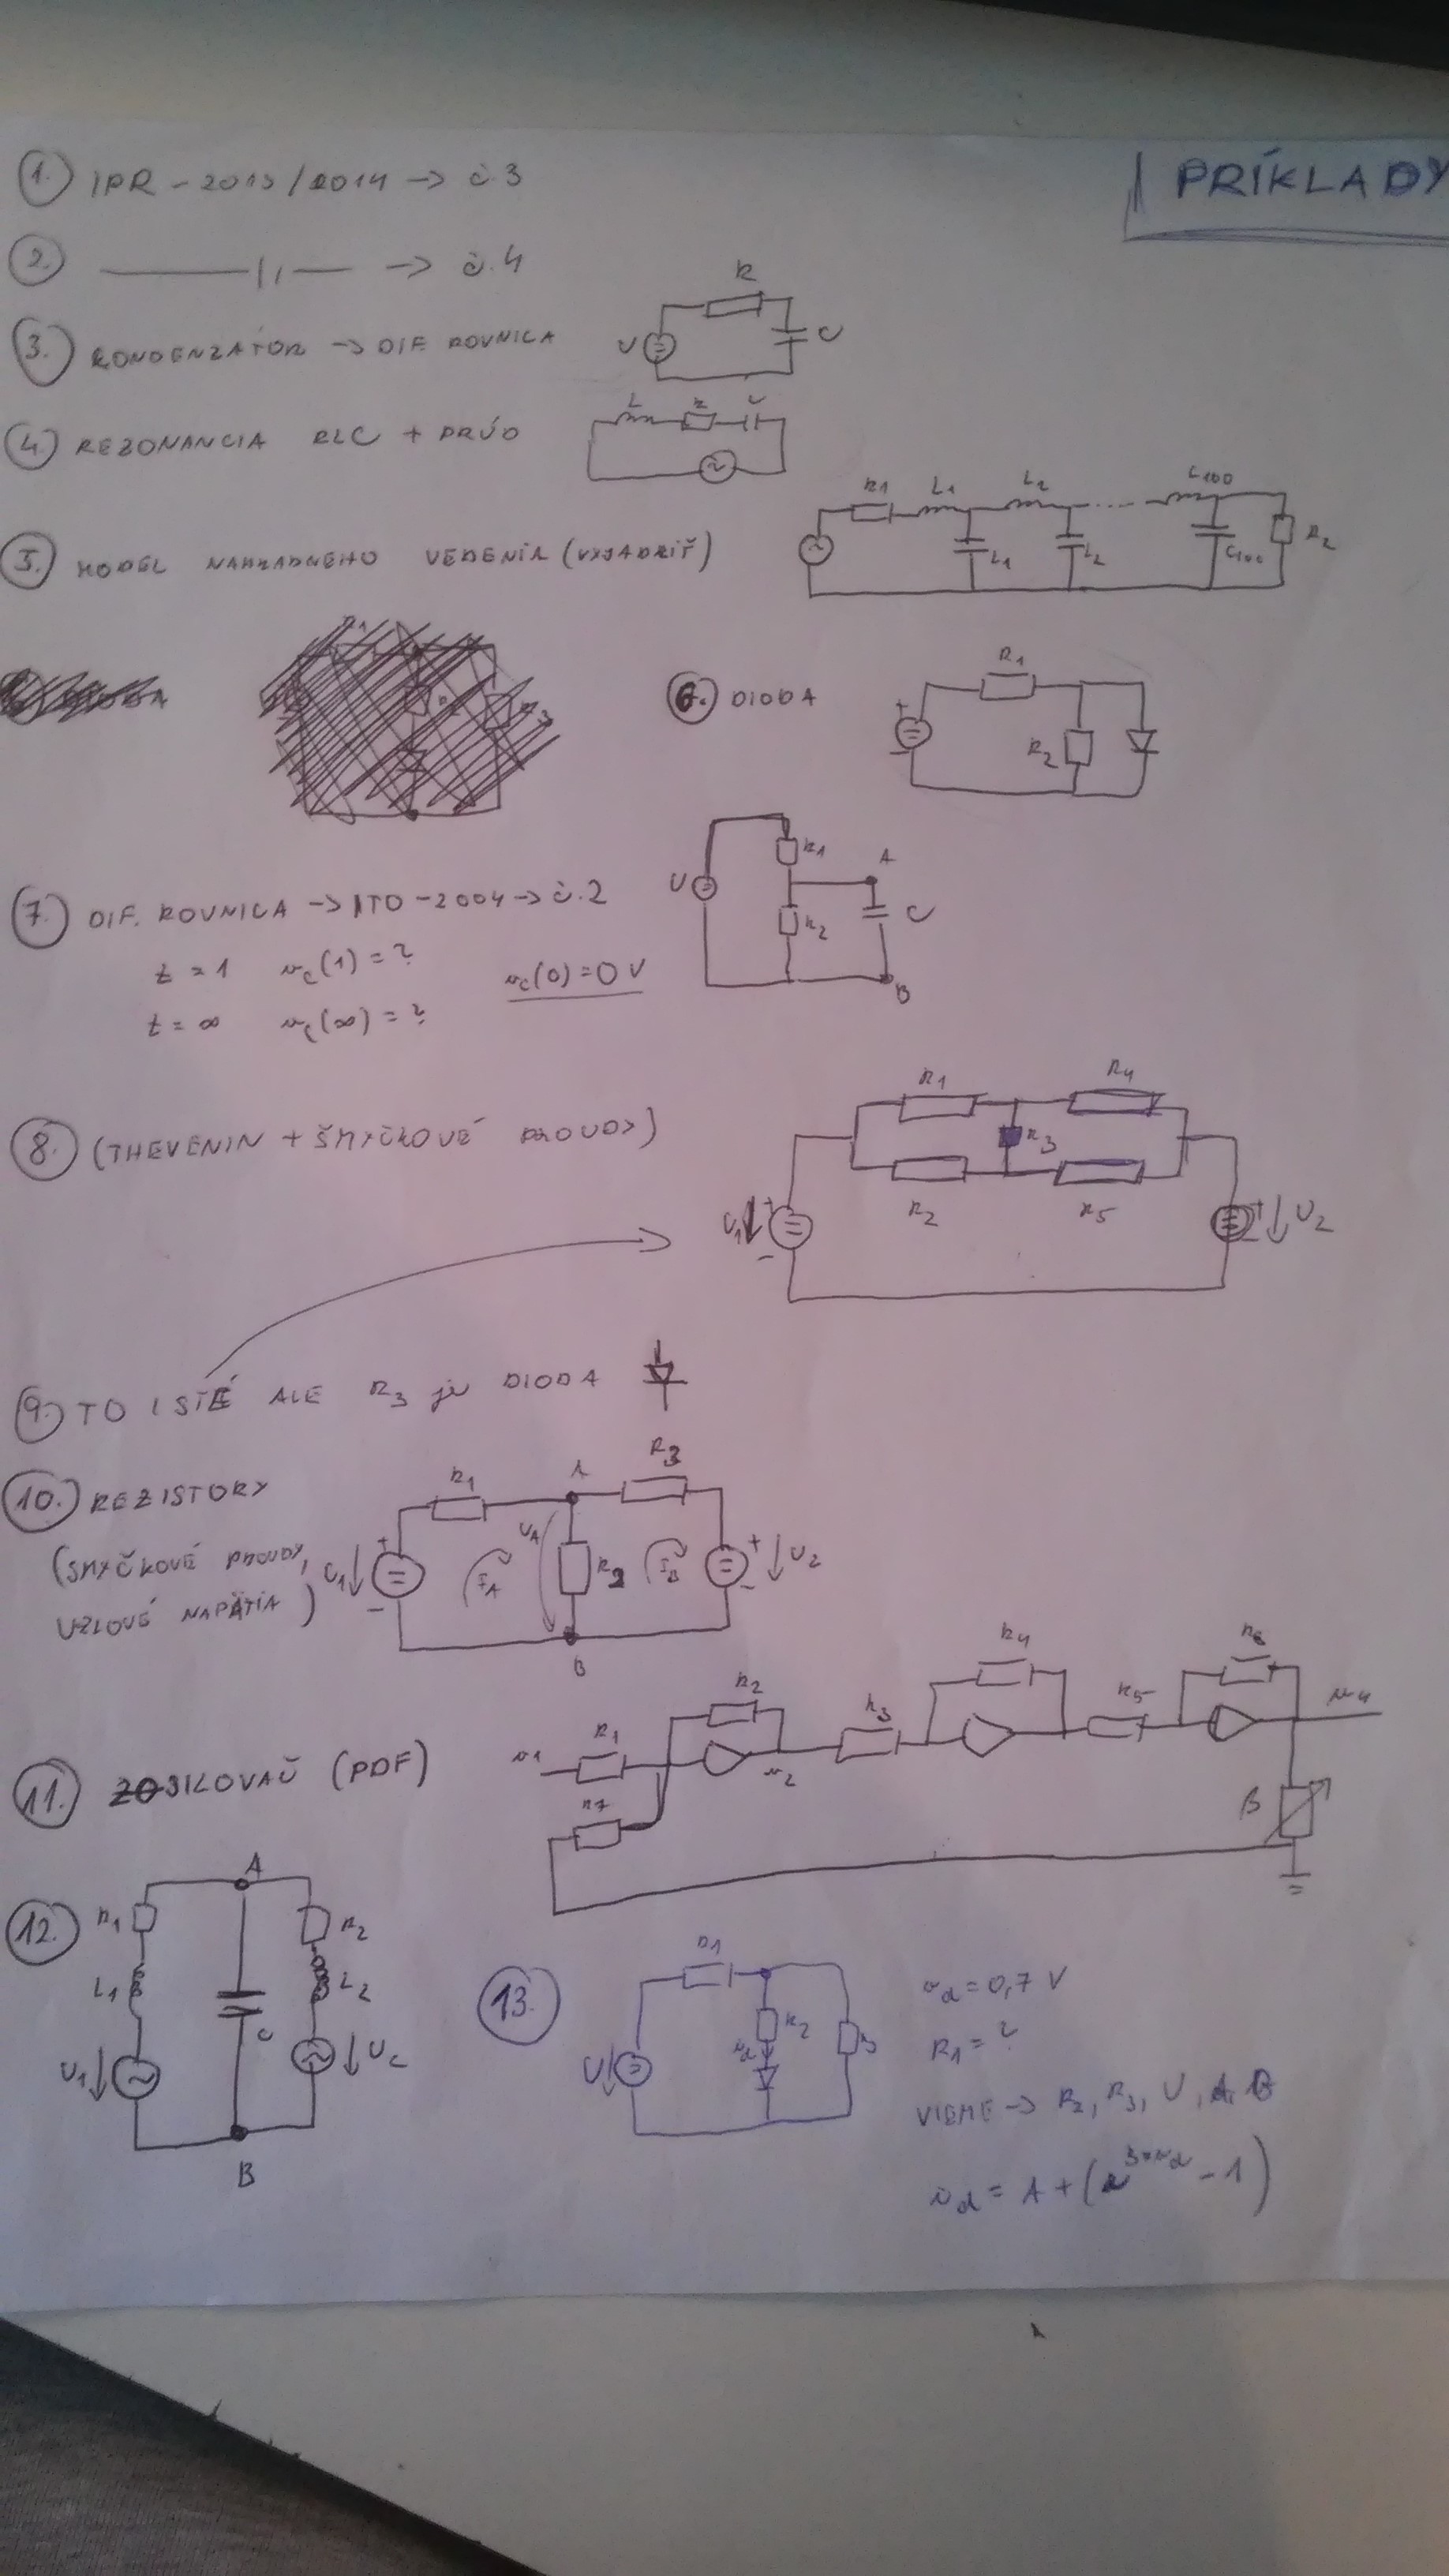 PRÍKLADY
1. IPR - 2013/2014 -> č.3
2. ——— 11 — -> č.4
3. KONDENZÁTOR -> DIF. ROVNICA
R
U
C
4. REZONANCIA RLC + PRÚD
L R C
5. MODEL NAHRADNEHO VEDENIA (VYJADRIŤ)
R1 L1 L2 L100
C1 C2 C100 R2
6. DIODA
R1
R2
7. DIF. ROVNICA -> ITO - 2004 -> č.2
t = 1 uc(1) = ?
uc(0) = 0 V
t = ∞ uc(∞) = ?
U R1 A
R2 C
B
8. (THEVENIN + SMYČKOVÉ PROUDY)
R1 R4
R3
R2 R5
U1 + - + - U2
9. TO ISTÉ ALE R3 je DIODA
10. REZISTORY
(SMYČKOVÉ PROUDY,
UZLOVÉ NAPÄTIA)
R1 A R3
U1 + - IA UA R2 IB + - U2
B
11. ZOSILOVAČ (PDF)
u1 R1 R2 u2 R3 R4 R5 R6 u4
R7 β
12.
A
R1 R2
L1 L2
C
U1
B
13.
R1
R2
U
ud = 0,7 V
R1 = ?
VIEME -> R2, R3, U, A, B